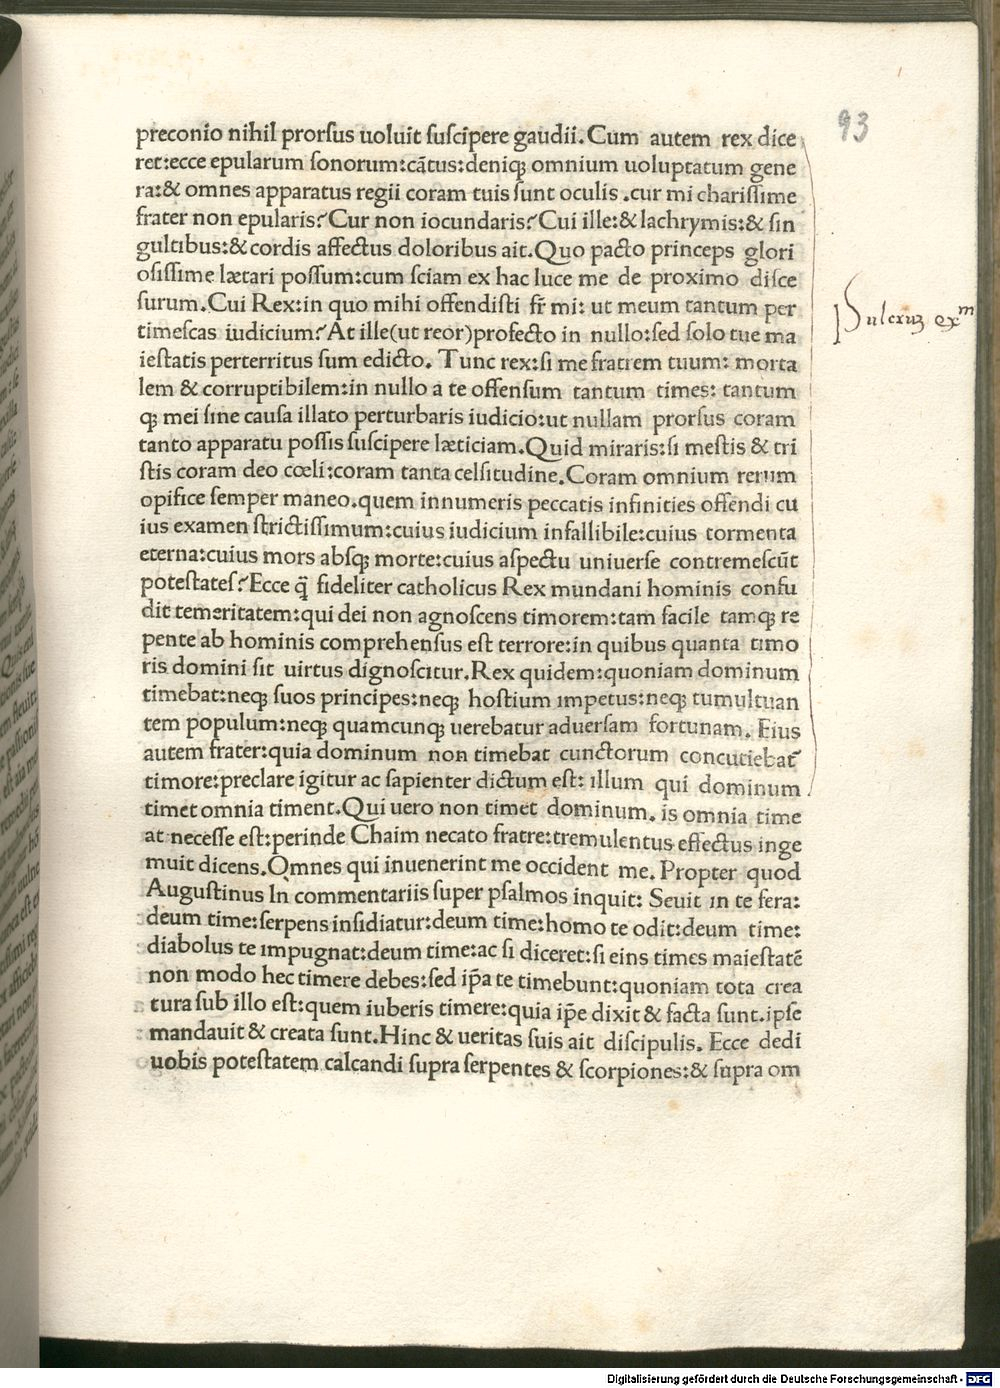 93
preconio nihil prorſus uoluit ſuſcipere gaudii. Cum autem rex dice
ret:ecce epularum ſonorum:cãtus:deniqꝫ omnium uoluptatum gene
ra:& omnes apparatus regii coram tuis ſunt oculis .cur mi chariſſime
frater non epularis? Cur non iocundaris? Cui ille:& lachrymis:& ſin
gultibus:& cordis affectus doloribus ait. Quo pacto princeps glori
oſiſſime lætari poſſum:cum ſciam ex hac luce me de proximo diſce
ſurum. Cui Rex:in quo mihi offendiſti fr̃ mi: ut meum tantum per
timeſcas iudicium? At ille(ut reor)profecto in nullo:ſed ſolo tue ma
ieſtatis perterritus ſum edicto. Tunc rex:ſi me fratrem tuum: morta
lem & corruptibilem:in nullo a te offenſum tantum times: tantum
qꝫ mei ſine cauſa illato perturbaris iudicio:ut nullam prorſus coram
tanto apparatu poſſis ſuſcipere læticiam. Quid miraris:ſi meſtis & tri
ſtis coram deo cœli:coram tanta celſitudine. Coram omnium rerum
opifice ſemper maneo.quem innumeris peccatis infinities offendi cu
ius examen ſtrictiſſimum:cuius iudicium infallibile:cuius tormenta
eterna:cuius mors abſqꝫ morte:cuius aſpectu uniuerſe contremeſcũt
poteſtateſ? Ecce q̃ fideliter catholicus Rex mundani hominis confu
dit temeritatem:qui dei non agnoſcens timorem:tam facile tamqꝫ re
pente ab hominis comprehenſus eſt terrore:in quibus quanta timo
ris domini ſit uirtus dignoſcitur. Rex quidem:quoniam dominum
timebat:neqꝫ ſuos principes:neqꝫ hoſtium impetus:neqꝫ tumultuan
tem populum:neqꝫ quamcunqꝫ uerebatur aduerſam fortunam. Eius
autem frater:quia dominum non timebat cunctorum concutiebat᷑
timore:preclare igitur ac ſapienter dictum eſt: illum qui dominum
timet omnia timent. Qui uero non timet dominum. is omnia time
at neceſſe eſt:perinde Chaim necato fratre:tremulentus effectus inge
muit dicens. Omnes qui inuenerint me occident me. Propter quod
Auguſtinus In commentariis ſuper pſalmos inquit: Seuit in te fera:
deum time:ſerpens inſidiatur:deum time:homo te odit:deum time:
diabolus te impugnat:deum time:ac ſi diceret:ſi eins times maieſtatẽ
non modo hec timere debes:ſed ip̃a te timebunt:quoniam tota crea
tura ſub illo eſt:quem iuberis timere:quia ip̃e dixit & facta ſunt.ipſe
mandauit & creata ſunt. Hinc & ueritas ſuis ait diſcipulis. Ecce dedi
uobis poteſtatem calcandi ſupra ſerpentes & ſcorpiones:& ſupra om
Digitalisierung gefördert durch die Deutsche Forschungsgemeinschaft - DFG